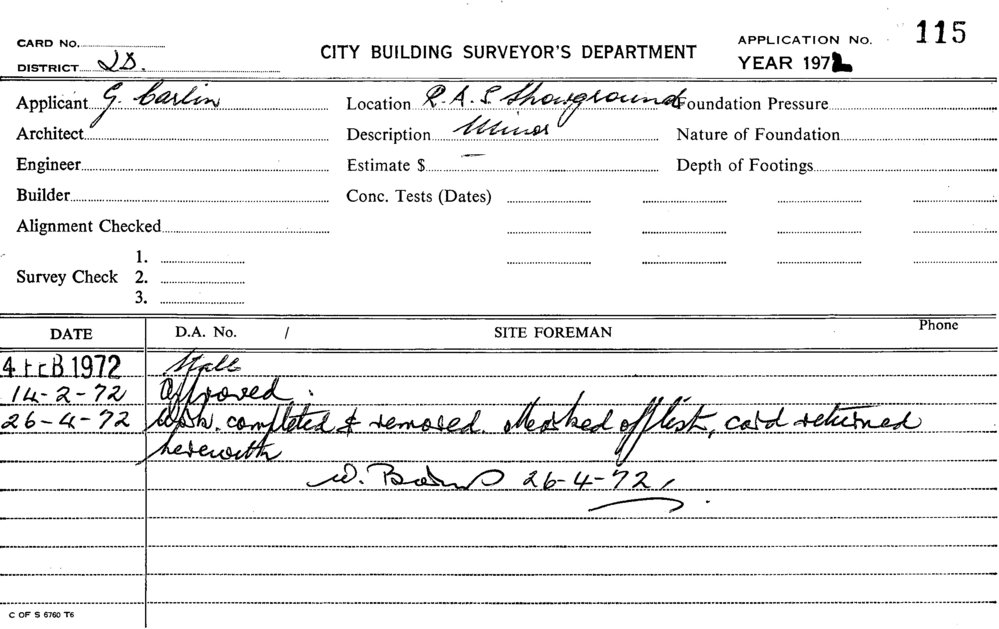 CARD No.
CITY BUILDING SURVEYOR'S DEPARTMENT
APPLICATION No. 115
DISTRICT 2D.
YEAR 1972
Applicant G. Carlin
Location R.A.S Showground
Foundation Pressure
Architect
Description Minor
Nature of Foundation
Engineer
Estimate $ —
Depth of Footings
Builder
Conc. Tests (Dates)
Alignment Checked
Survey Check
1.
2.
3.
DATE D.A. No. / SITE FOREMAN Phone
4 FEB 1972 Stall
14-2-72 Approved.
26-4-72 Work. completed & removed. Marked off list, card returned
herewith
W. 26-4-72
C OF S 6760 T6